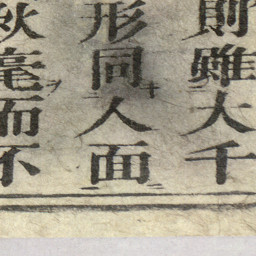 則雖大千
形同人面
秋毫而不